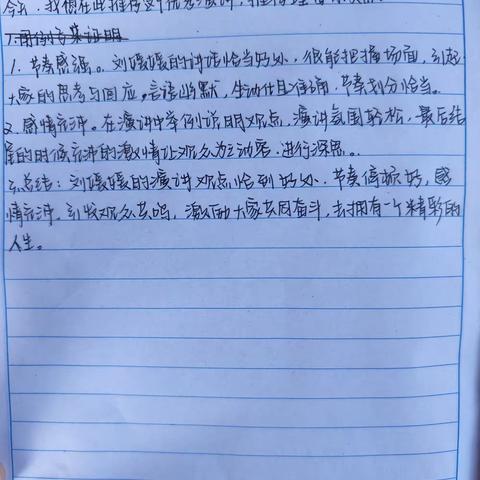 今天,我想在此推荐这个优秀演讲,
1.用例子来证明
1. 节奏感强。刘媛媛的讲话恰当好处,很能把握场面,引起
大家的思考与回应。言语幽默,生动什且准确,节奏划分恰当。
2. 感情充沛。在演讲中举例说明观点,演讲氛围轻松,最后结
尾的时候充沛的激情让观众为之动容,进行深思。
3.总结:刘媛媛的演讲观点恰到好处,节奏停顿好,感
情充沛。引发观众共鸣,激励大家共同奋斗,去拥有一个精彩的
人生。